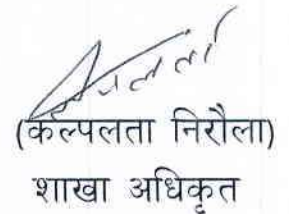 (कल्पलता निरौला)
शाखा अधिकृत